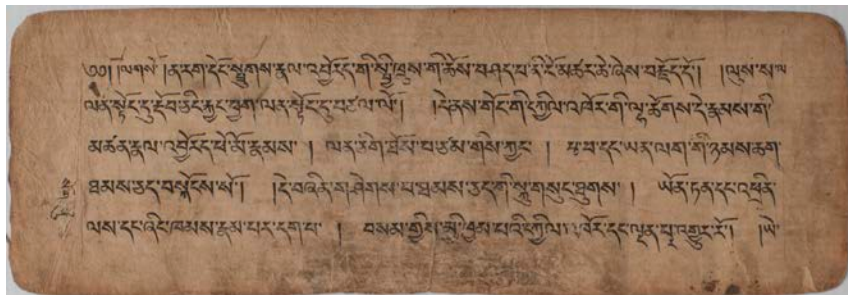 ༄༅། །ལགས། །ན་རག་དོང་སྤྲུགས་རྣལ་འབྱོརད་ཀི་སྤྱི་ཁྲུས་ཀི་ཆོས་བཤད་པ་ནི་ངོ་མཚར་ཆེ་ཞེས་བརྗོད་དོ། །ལུས་ས་ལ
ལན་སྟོང་དུ་རྡོབ་ཅིང་རྐྱང་ཕྱག་ལན་སྟོང་དུ་བཙལ་ལོ། །དེནས་གོང་གི་དཀྱིལ་འཁོར་གི་ལྷ་ཚོགས་དེ་རྣམས་གི་
མཚན་རྣལ་འབྱོརད་པེ་མོ་རྣམས་ །ལན་རེག་ཐོས་པ་ཙམ་གིས་ཀྱང །རྩ་བ་དང་ཡན་ལག་གི་ཉམས་ཆག་
ཐམས་ཅད་བསྐོངས་སོ། །དེ་བཞིན་གཤེགས་པ་ཐམས་ཅད་ཀི་སྐུ་གསུང་ཐུགས་ །ཡོན་ཏན་དང་འཕྲིན་
ལས་དང་ཞིང་ཁམས་རྣམ་པར་དག་པ་ །བསམ་གྱིས་མྱི་ཁྱབ་པའི་དཀྱིལ་འཁོར་དང་ལྡན་པར་འགྱུར་རོ། །ཡེ་